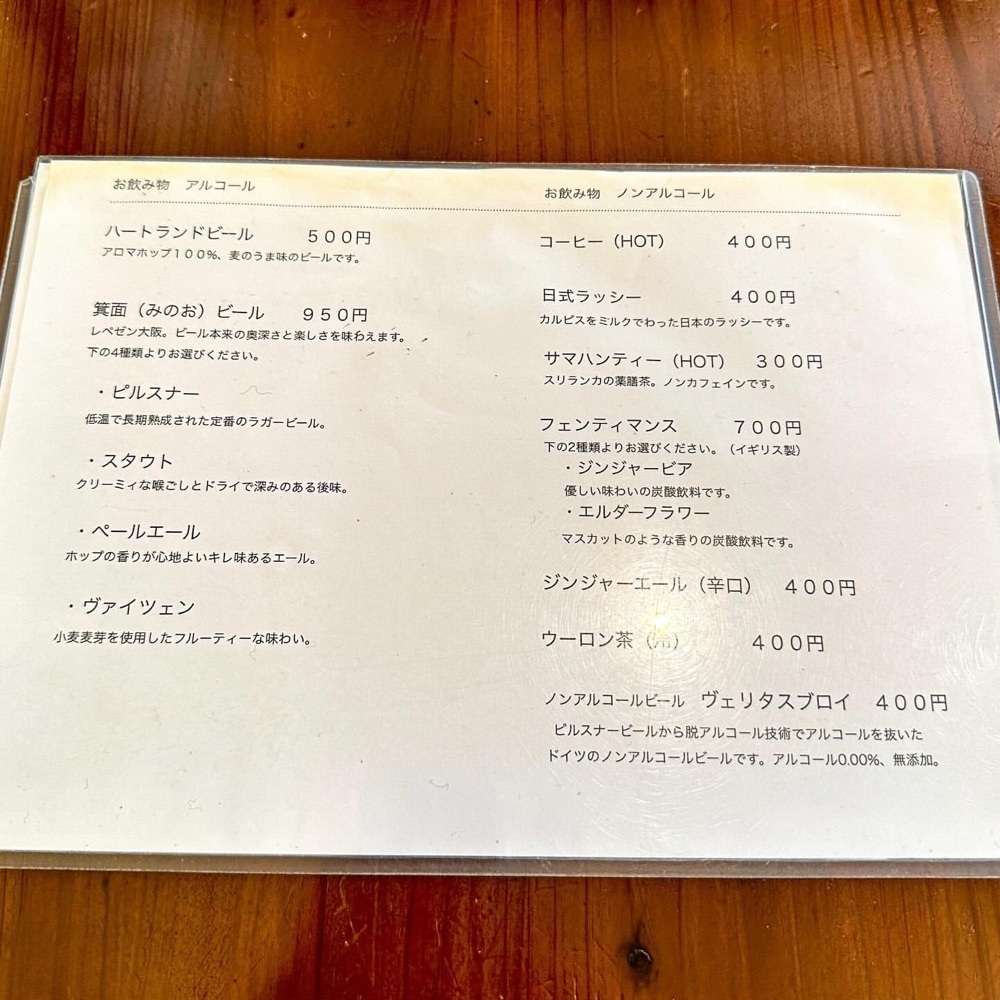 お飲み物　アルコール
ハートランドビール　５００円
アロマホップ１００％、麦のうま味のビールです。
箕面（みのお）ビール　９５０円
レペゼン大阪。ビール本来の奥深さと楽しさを味わえます。
下の4種類よりお選びください。
・ピルスナー
低温で長期熟成された定番のラガービール。
・スタウト
クリーミィな喉ごしとドライで深みのある後味。
・ペールエール
ホップの香りが心地よいキレ味あるエール。
・ヴァイツェン
小麦麦芽を使用したフルーティーな味わい。
お飲み物　ノンアルコール
コーヒー（HOT）　４００円
日式ラッシー　４００円
カルピスをミルクでわった日本のラッシーです。
サマハンティー（HOT）　３００円
スリランカの薬膳茶。ノンカフェインです。
フェンティマンス　７００円
下の2種類よりお選びください。（イギリス製）
・ジンジャービア
優しい味わいの炭酸飲料です。
・エルダーフラワー
マスカットのような香りの炭酸飲料です。
ジンジャーエール（辛口）　４００円
ウーロン茶（冷）　４００円
ノンアルコールビール　ヴェリタスブロイ　４００円
ピルスナービールから脱アルコール技術でアルコールを抜いた
ドイツのノンアルコールビールです。アルコール0.00%、無添加。